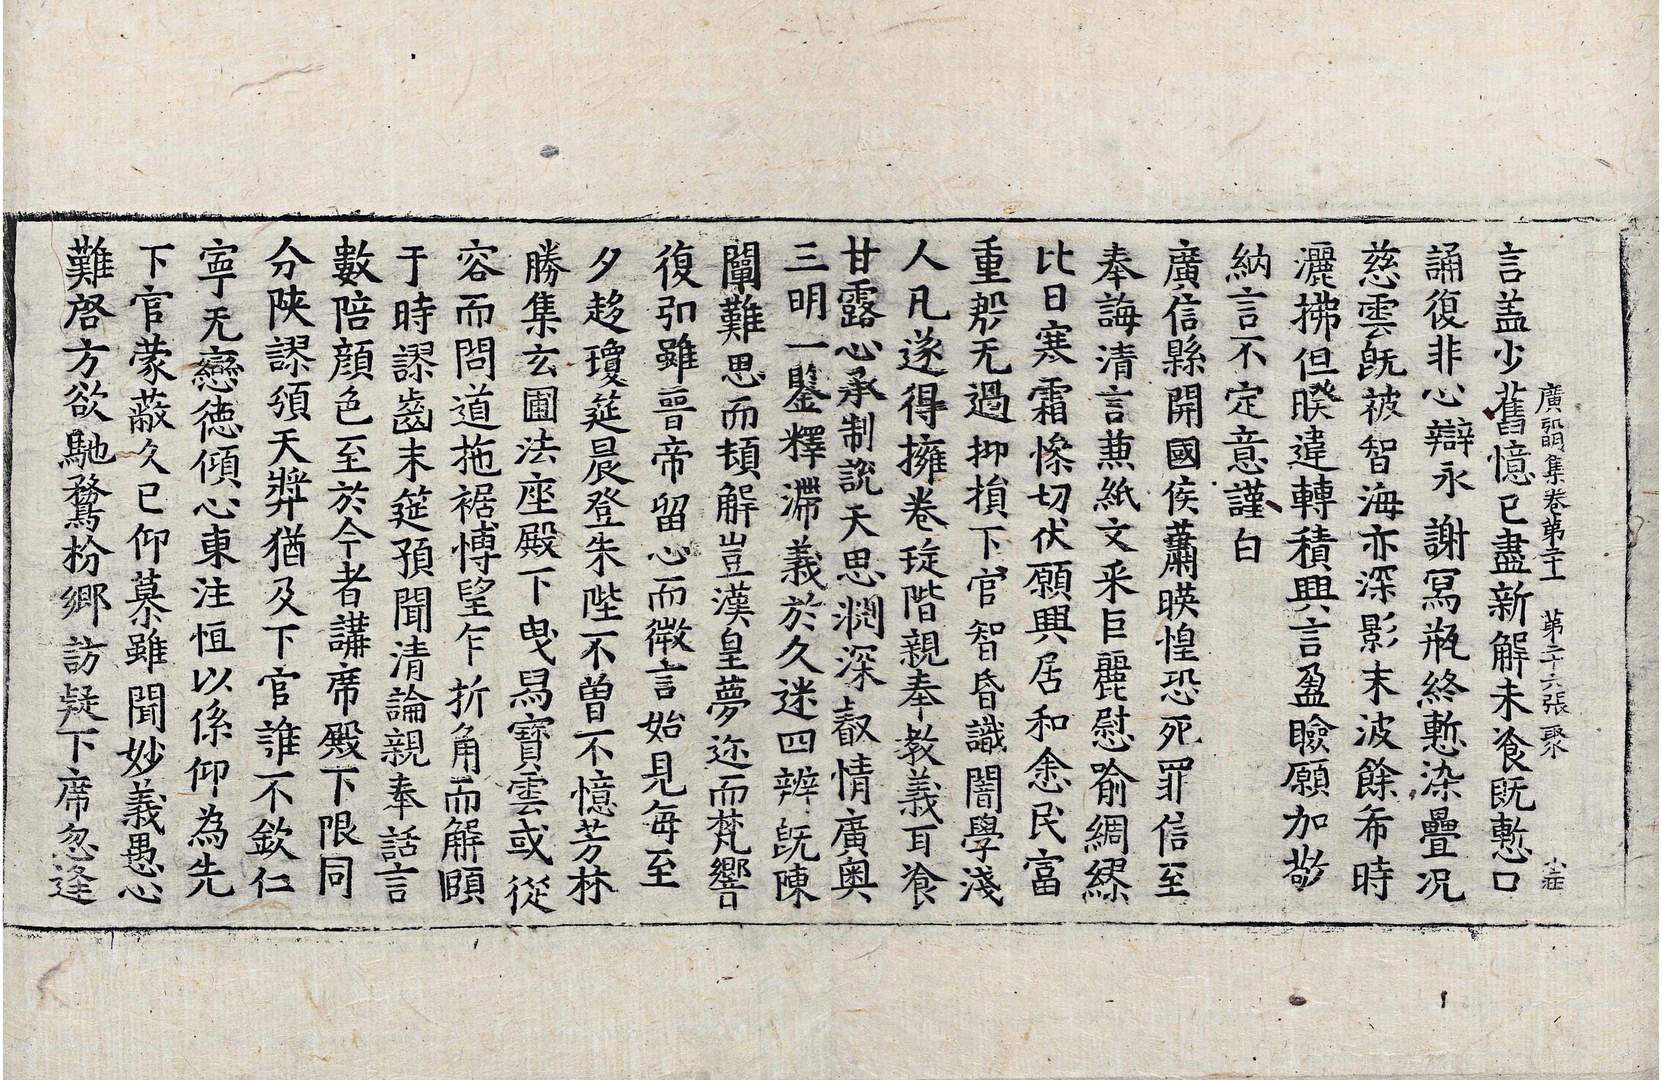 廣弘明集卷第二十一　第二十六張　聚　小莊
言盖少舊憶已盡新解未飡旣慙口
誦復非心辯永謝寫瓶終慙染疊况
慈雲旣被智海亦深影末波餘希時
灑拂但暌違轉積興言盈瞼願加敬
納言不定意謹白
廣信縣開國侯蕭暎惶恐死罪信至
奉誨清言兼紙文采巨麗慰喻綢繆
比日寒霜慘切伏願興居和悆民富
重郡无過抑損下官智昏識闇學淺
人凡遂得擁卷琁階親奉教義耳飡
甘露心承制說天思淵深叡情廣奥
三明一鑒釋滯義於久迷四辨旣陳
闡難思而頓解豈漢皇夢迩而梵響
復引雖晉帝留心而微言始見每至
夕趍瓊筵晨登朱陛不曾不憶芳林
勝集玄圃法座殿下曳舄寶雲或從
容而問道拖裾博望乍折角而解頥
于時謬齒末筵預聞清論親奉話言
數陪顔色至於今者講席殿下限同
分陝謬頒天奬猶及下官誰不欽仁
寧无戀德傾心東注恒以係仰為先
下官蒙蔽久已仰慕雖聞妙義愚心
難啓方欲馳騖枌鄉訪疑下席忽逢